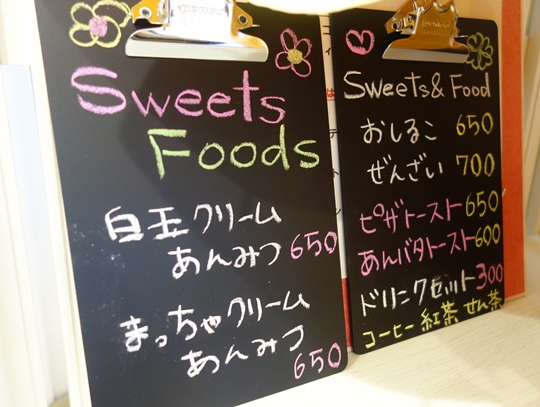 Sweets
Foods
白玉クリーム
あんみつ 650
まっちゃクリーム
あんみつ
650
Sweets & Food
おしるこ 650
ぜんざい 700
ピザトースト 650
あんバタトースト 600
ドリンクセット 300
コーヒー 紅茶 せん茶